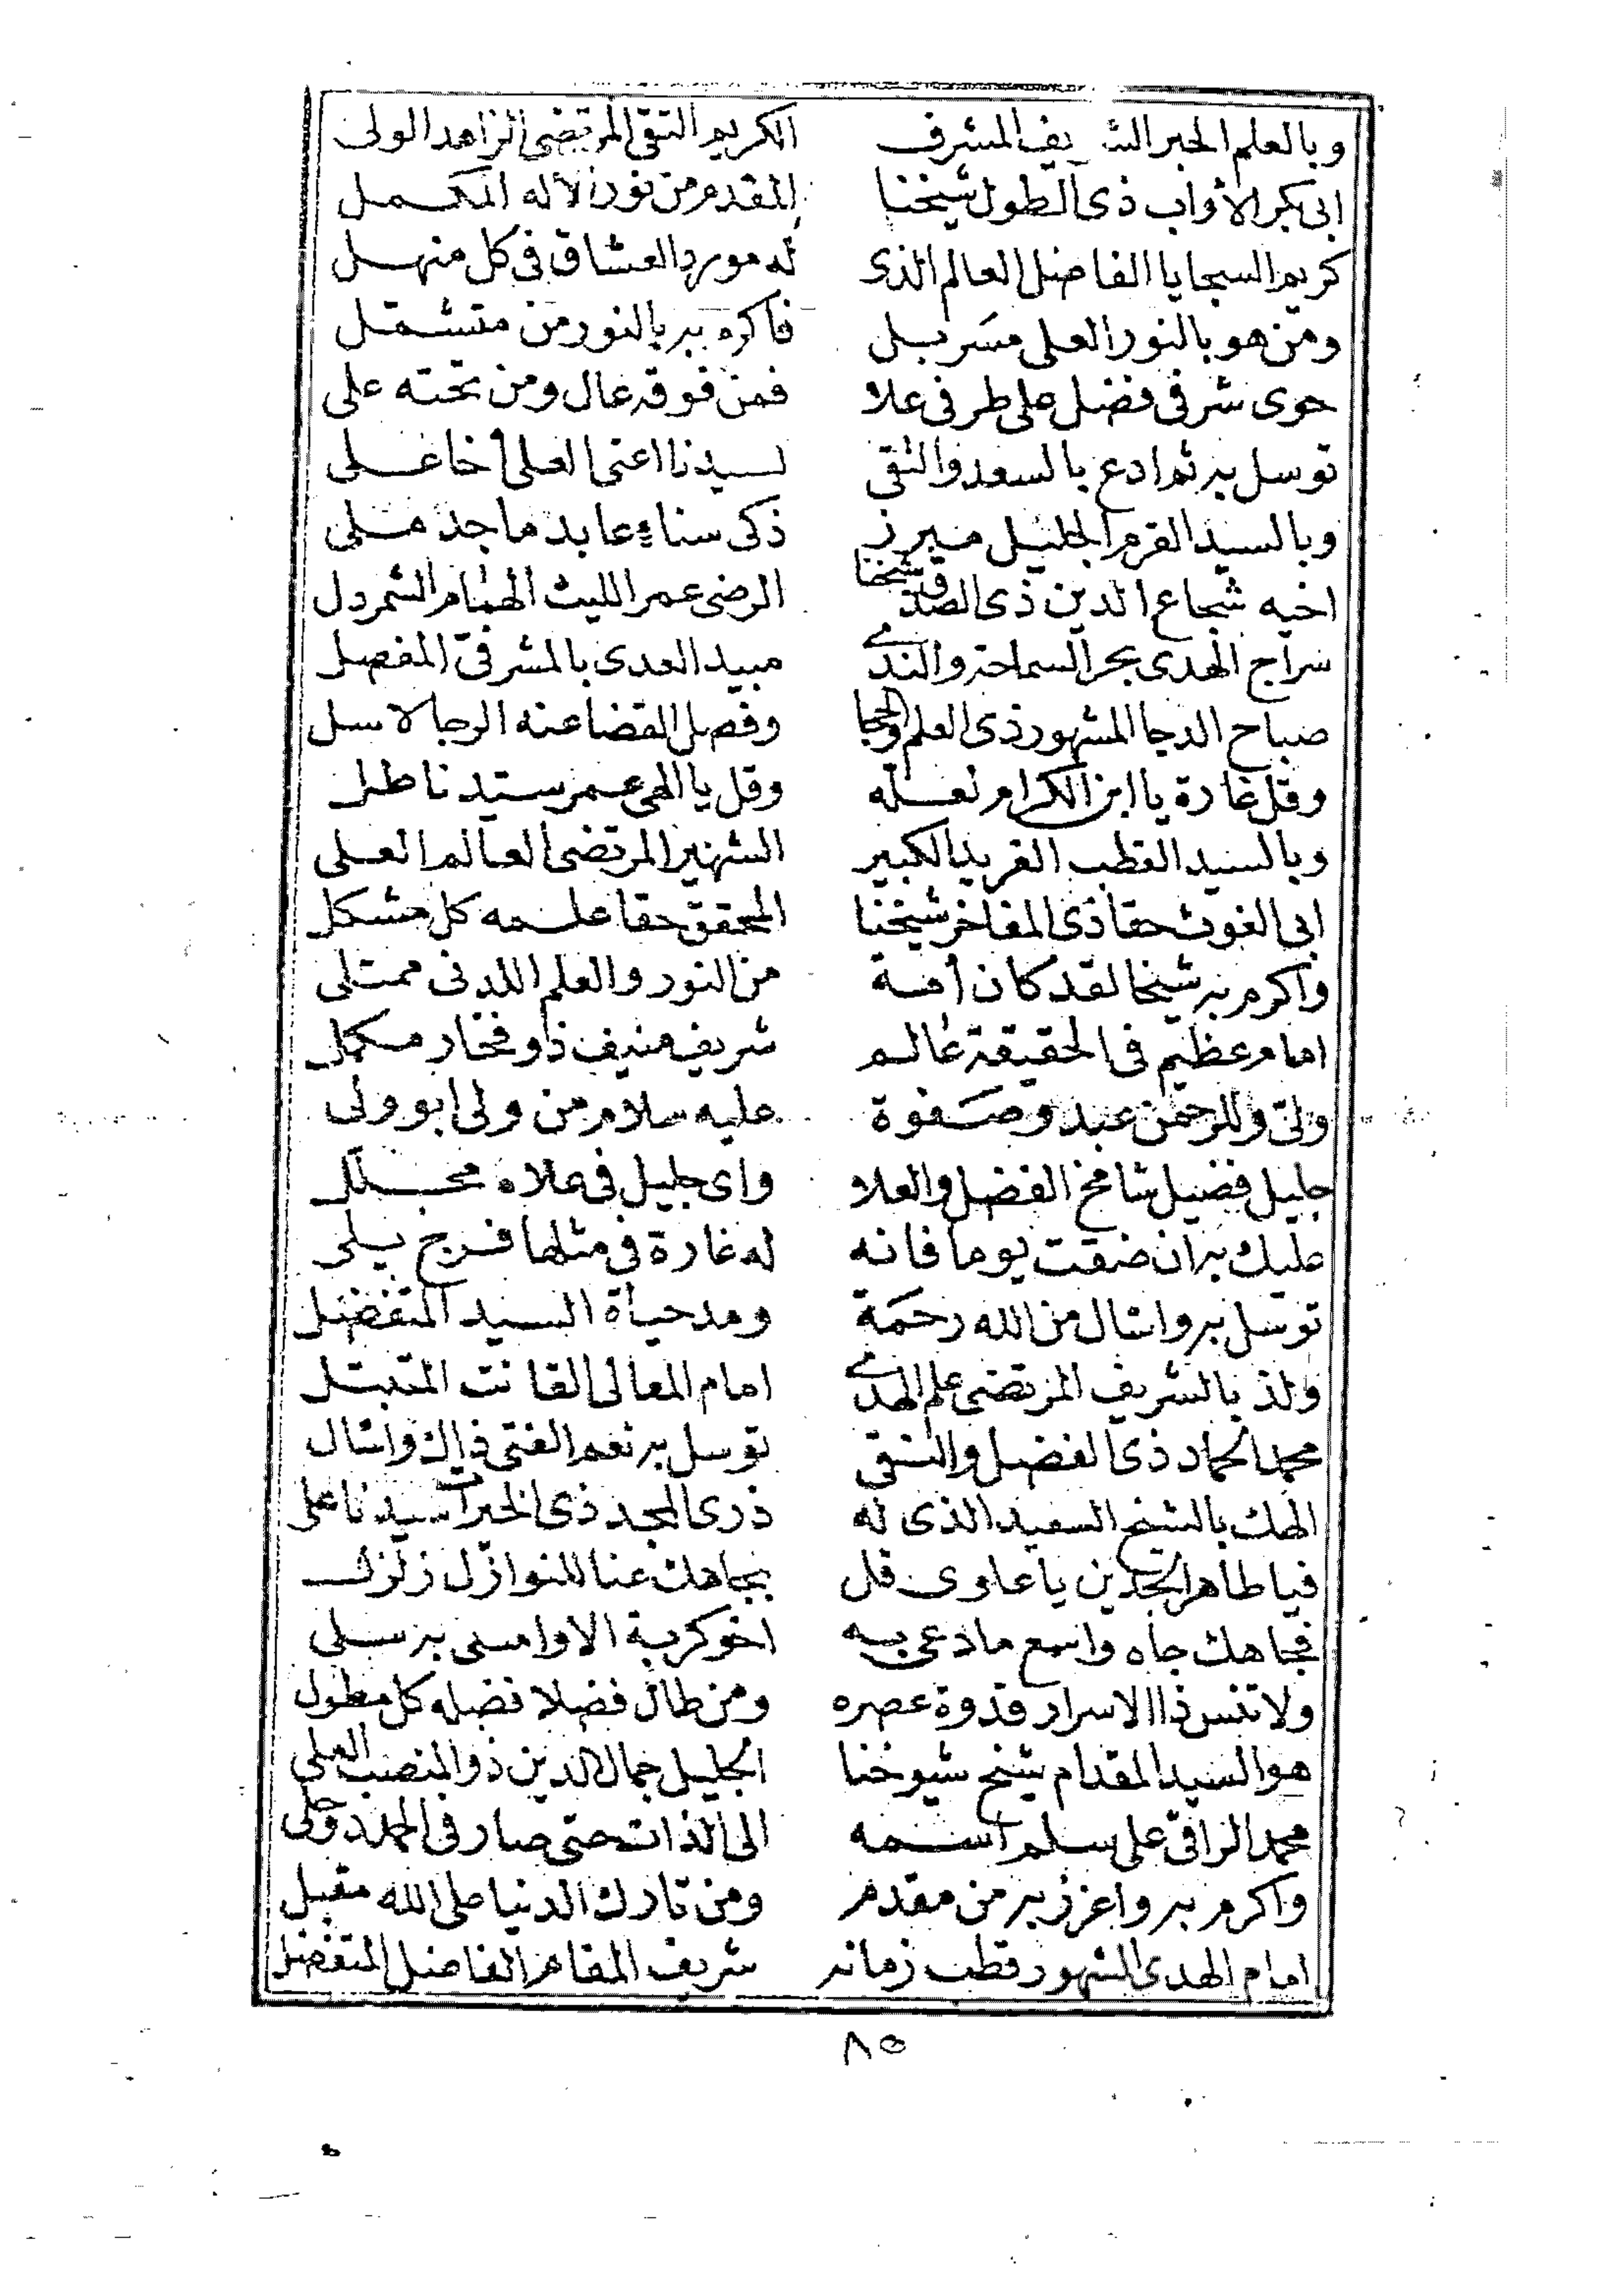 وبالعلم الحبر الشريف المشرف الكريم التقى المرتضى الزاهد الولى
ابى بكر الاواب ذى الطول شيخنا المقدم من نور الاله المكمل
كريم السجايا الفاضل العالم الذى له مورد العشاق فى كل منهل
ومن هو بالنور العلى مسربل فاكرم به بالنور من متشمل
حوى شرفى فضل على طرفى علا فمن فوقه عال ومن تحته على
توسل به ثم ادع بالسعد والتقى لسيدنا اعنى العلى أخا على
وبالسيد القرم الجليل مبرز ذكى سناء عابد ماجد ملى
اخيه شجاع الدين ذى الصدق شيخنا الرضى عمر الليث الهمام الشمردل
سراج الهدى بحر السماحة والندى مبيد العدى بالمشرفى المفصل
صباح الدجا المشهور ذى العلم والحجا وفصل القضا عنه الرجا لا سل
وقل غارة يا ابن الكرام لعله وقل يا الهى عمر سيدنا طل
وبالسيد القطب الفريد الكبير الشهير المرتضى العالم العلى
ابى الغوث حقا ذى المفاخر شيخنا المحقق حقا علمه كل مشكل
واكرم به شيخا لقد كان أمة من النور والعلم اللدنى ممتلى
امام عظيم فى الحقيقة عالم شريف منيف ذو فخار مكمل
ولىّ وللرحمن عبد وصفوة عليه سلام من ولى ابو ولى
جليل فضيل شامخ الفضل والعلا واى جليل فى علاه مجلل
عليك به ان ضقت يوما فانه له غارة فى مثلها فرج يلى
توسل به واسال من الله رحمة ومد حياة السيد المتفضل
ولذ بالشريف المرتضى علم الهدى امام المعالى القانت المتبتل
محمد الحماد ذى الفضل والتقى توسل به نعم الفتى ذاك واسال
الهك بالشيخ السعيد الذى له ذرى المجد ذى الخيرات سيدنا على
فيا طاهر الجدين يا علوى قل بجاهك عنا للنوازل زلزل
فجاهك جاه واسع ما دعى به اخو كربة الا وامسى به سلى
ولا تنس ذا الاسرار قدوة عصره ومن طال فضلا فضله كل مطول
هو السيد المقدام شيخ شيوخنا الجليل جمال الدين ذو المنصب العلى
محمد الراقى على سلم اسمه الى الذات حتى صار فى الحمد
واكرم به واعزز به من مقدم ومن تارك الدنيا على الله مقبل
امام الهدى الشهور قطب زمانه شريف المقام الفاضل المتفضل
٨٥